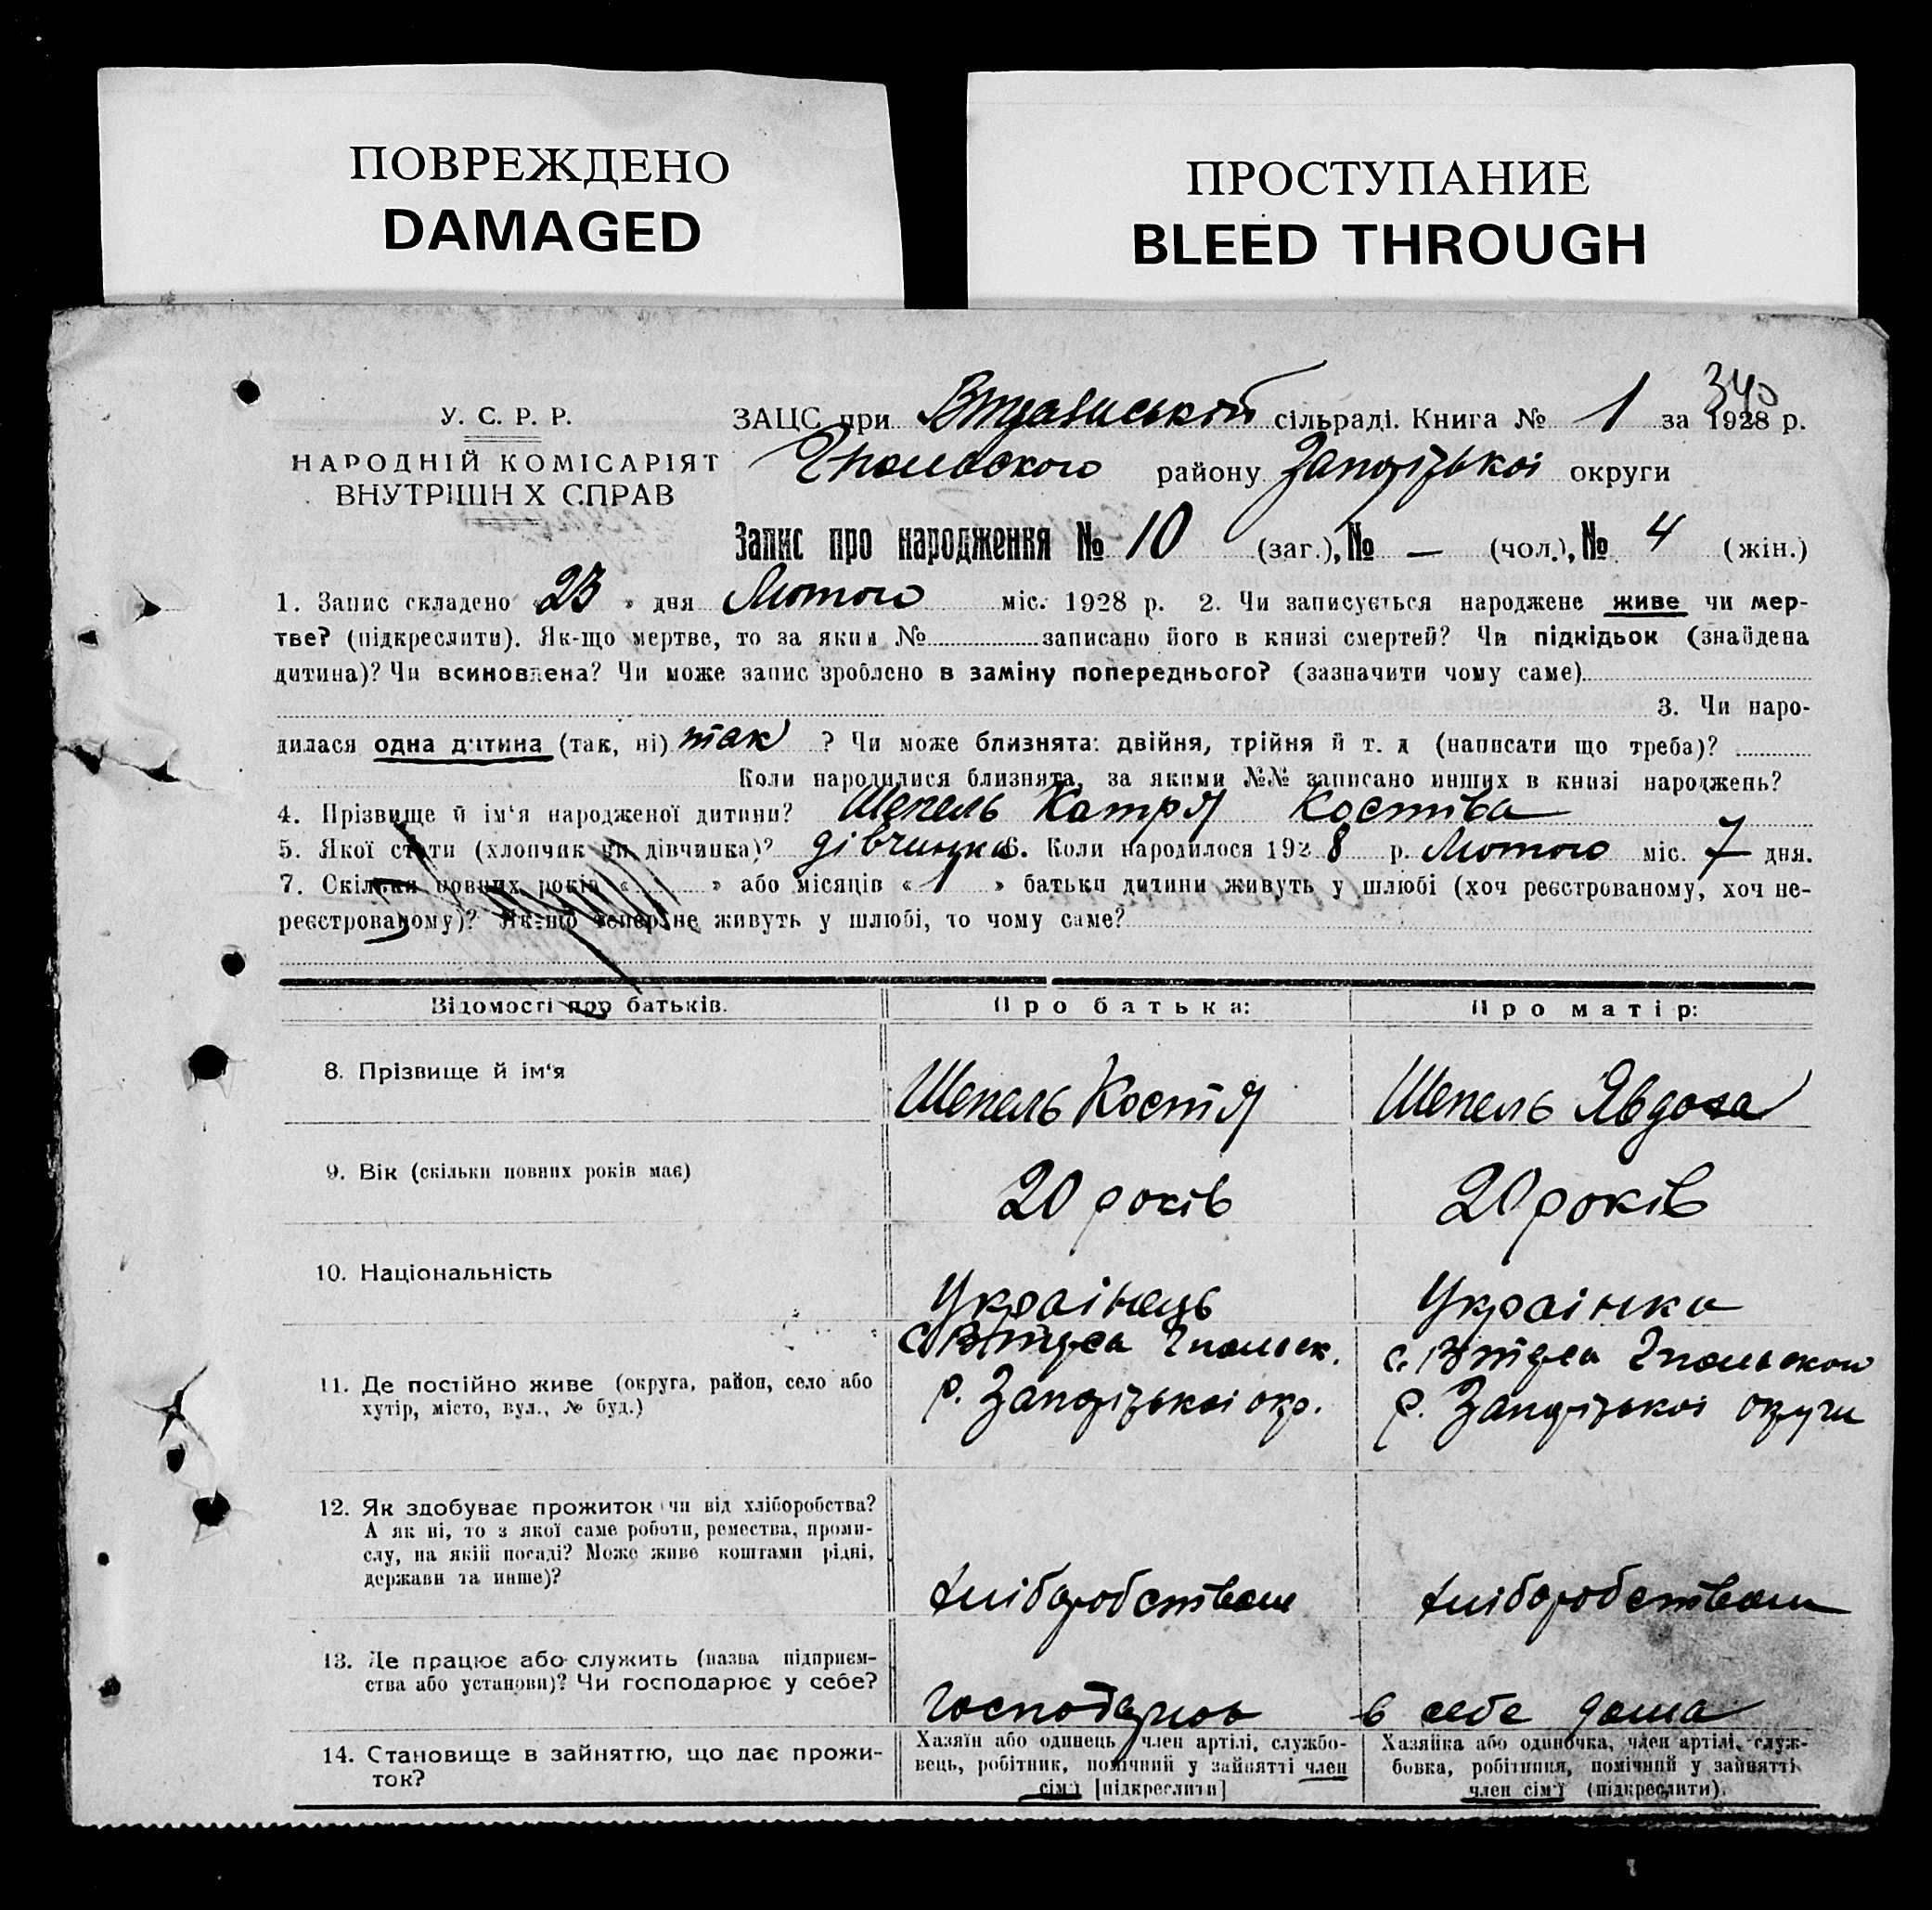 ПОВРЕЖДЕНО
DAMAGED
ПРОСТУПАНИЕ
BLEED THROUGH
340
У. С. Р. Р.
НАРОДНІЙ КОМІСАРІЯТ
ВНУТРІШН Х СПРАВ
ЗАЦС при сільраді. Книга № 1 за 1928 р.
району Запорізької округи
Запис про народження № 10 (заг.), № — (чол.), № 4 (жін.)
1. Запис складено « 23 » дня Лютого міс. 1928 р. 2. Чи записується народжене живе чи мер-
тве? (підкреслити). Як-що мертве, то за яким № записано його в книзі смертей? Чи підкідьок (знайдена
дитина)? Чи всиновлена? Чи може запис зроблено в заміну попереднього? (зазначити чому саме)
3. Чи наро-
дилася одна дитина (так, ні) так ? Чи може близнята: двійня, трійня й т. д (написати що треба)?
Коли народилися близнята, за якими №№ записано инших в книзі народжень?
4. Прізвище й ім'я народженої дитини? Шепель Катря Костіва
5. Якої стати (хлопчик чи дівчинка)? дівчинка 6. Коли народилося 1928 р. Лютого міс. 7 дня.
7. Скільки повних років « » або місяців « 1 » батьки дитини живуть у шлюбі (хоч реєстрованому, хоч не-
реєстрованому)? Як-що тепер не живуть у шлюбі, то чому саме?
Відомості про батьків.
Про батька:
Про матір:
8. Прізвище й ім'я
Шепель Костя
Шепель Явдоха
9. Вік (скільки повних років має)
20 років
20 років
10. Національність
Українець
Українка
11. Де постійно живе (округа, район, село або
хутір, місто, вул., № буд.)
р. Запорізької окр.
р. Запорізької округи
12. Як здобуває прожиток чи від хліборобства?
А як ні, то з якої саме роботи, ремества, проми-
слу, на якій посаді? Може живе коштами рідні,
держави та инше)?
хліборобством
хліборобством
13. Де працює або служить (назва підприєм-
ства або установи)? Чи господарює у себе?
господарює в себе дома
14. Становище в зайняттю, що дає прожи-
ток?
Хазяїн або одинець, член артілі, службо-
вець, робітник, помічний у зайнятті член
сім'ї [підкреслити]
Хазяйка або одиночка, член артілі, служ-
бовка, робітниця, помічний у зайнятті
член сім'ї (підкреслити).